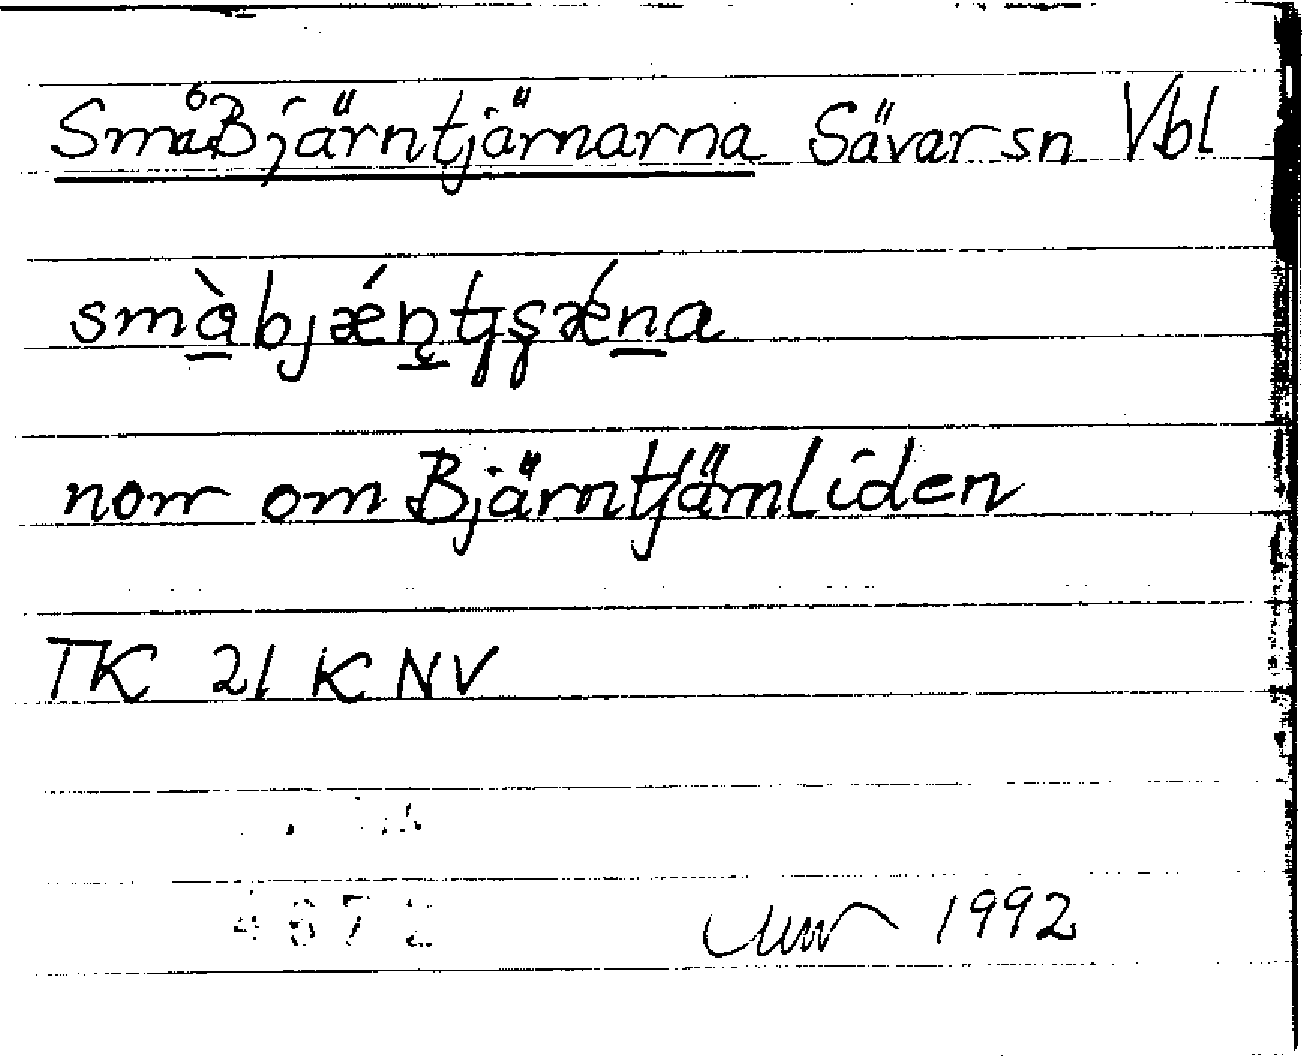 SmåBjärntjärnarna Sävar sn Vbl
smàbjǽn̥tʂǽna
norr om Bjärntjärnliden
TK 21 K NV
1992